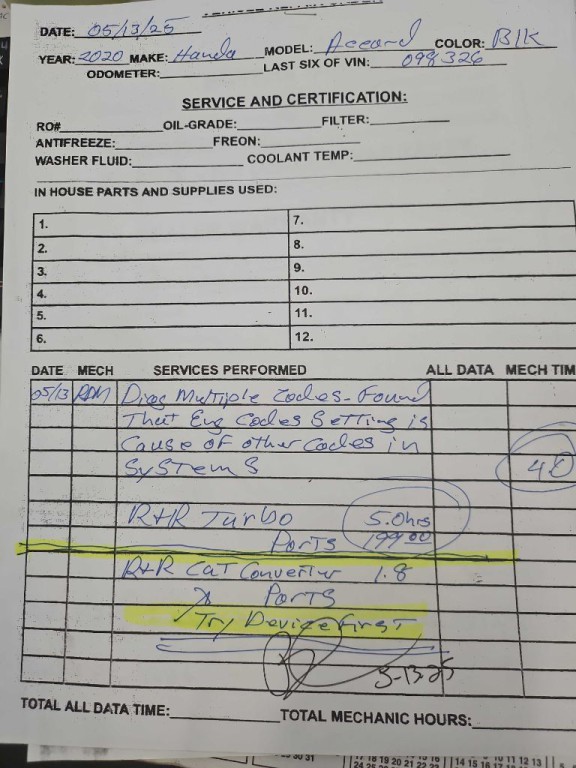 DATE: 05/13/25
YEAR: 2020 MAKE: Handa MODEL: Accord COLOR: Blk
ODOMETER: LAST SIX OF VIN: 098326
SERVICE AND CERTIFICATION:
RO# OIL-GRADE: FILTER:
ANTIFREEZE: FREON:
WASHER FLUID: COOLANT TEMP:
IN HOUSE PARTS AND SUPPLIES USED:
1. 7.
2. 8.
3. 9.
4. 10.
5. 11.
6. 12.
DATE MECH SERVICES PERFORMED ALL DATA MECH TIM
05/13 Diag Multiple Codes - Found
That Eng Codes Setting is
Cause of other Codes in
Systems 4.0
R+R Turbo 5.0hrs
Parts 199.00
R+R Cat Converter 1.8
Parts
Try Device First
5-13-25
TOTAL ALL DATA TIME: TOTAL MECHANIC HOURS:
30 31
18 19 20 21 22 23
14 15 16 17
10 11 12 13